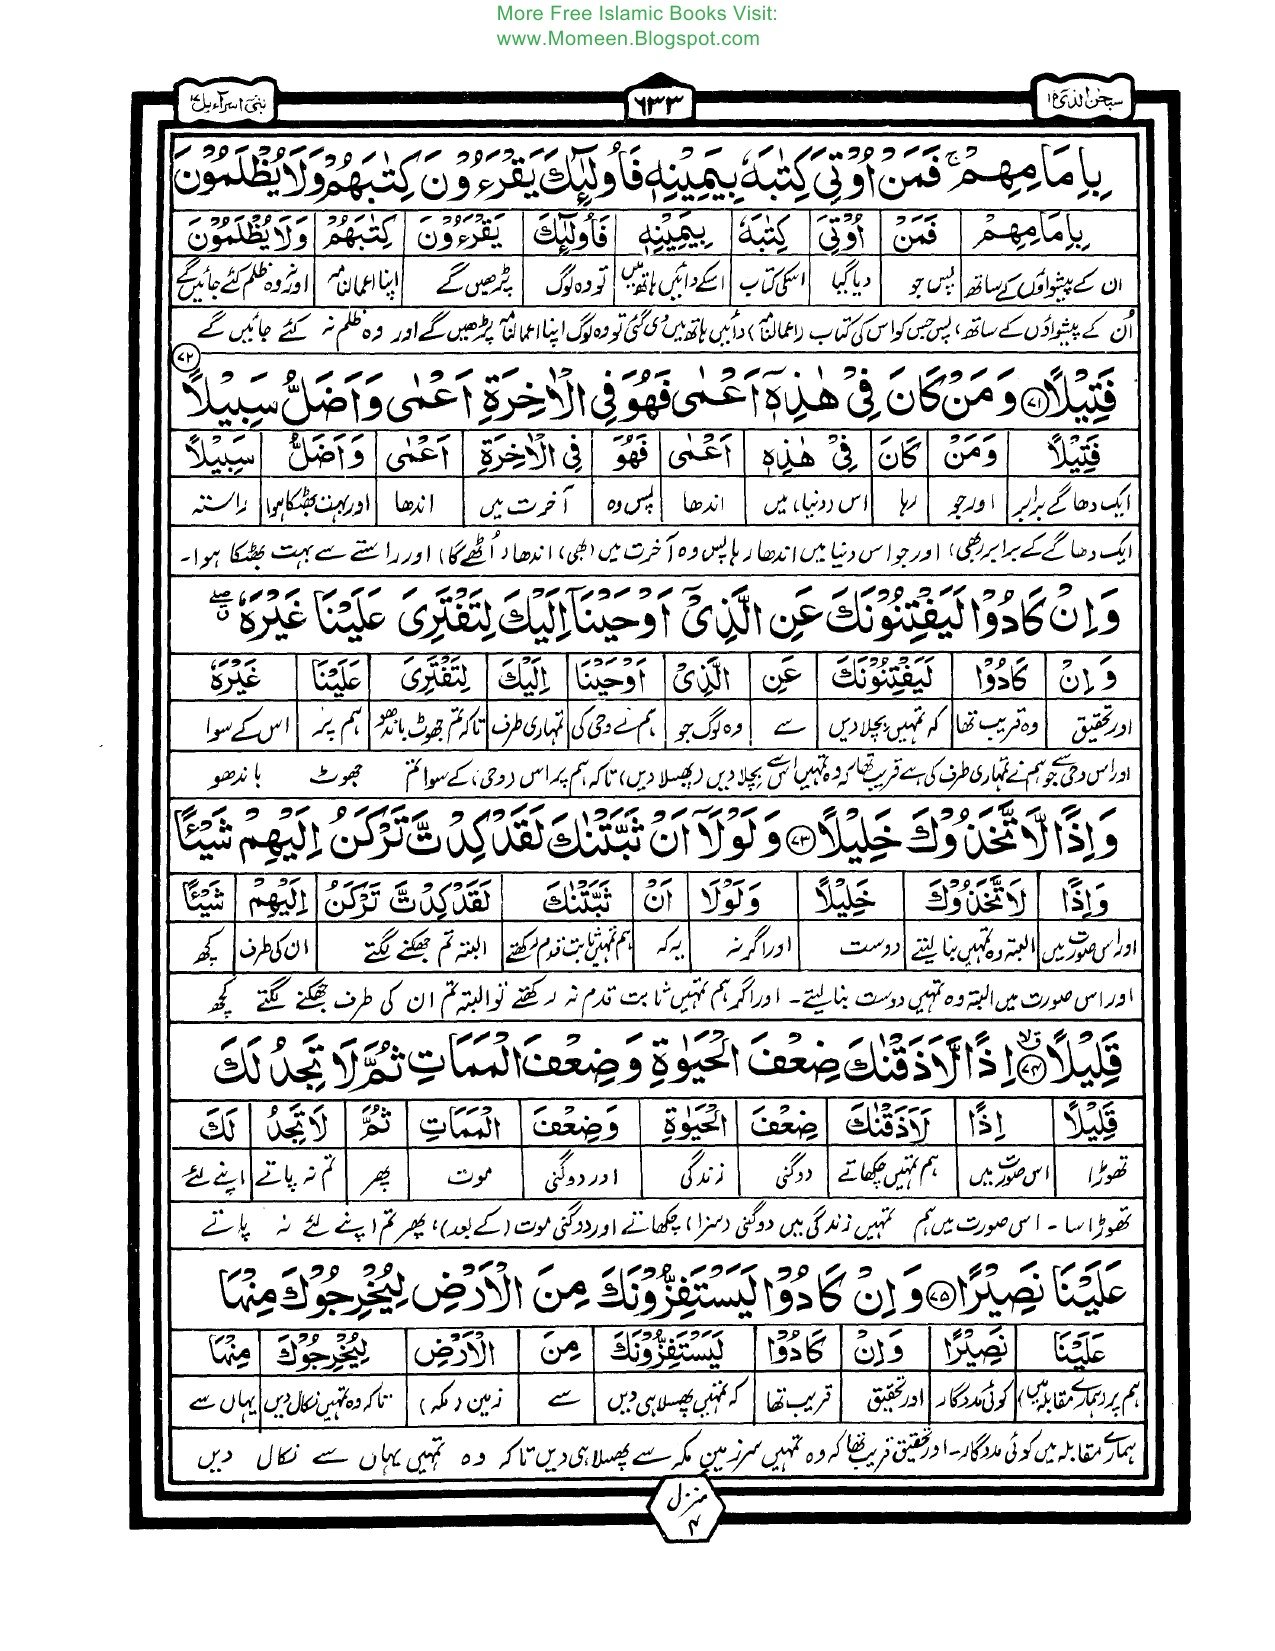 More Free Islamic Books Visit:
www.Momeen.Blogspot.com
سبحٰن الذی ۱۵
۶۳۳
بنیۤ اسرآءیل ۱۷
بِاِمَامِهِمْ ۚ فَمَنْ اُوْتِیَ كِتٰبَهٗ بِیَمِیْنِهٖ فَاُولٰٓئِكَ یَقْرَءُوْنَ كِتٰبَهُمْ وَلَا یُظْلَمُوْنَ
بِاِمَامِهِمْ فَمَنْ اُوْتِیَ كِتٰبَهٗ بِیَمِیْنِهٖ فَاُولٰٓئِكَ یَقْرَءُوْنَ كِتٰبَهُمْ وَلَا یُظْلَمُوْنَ
ان کے پیشواؤں کے ساتھ پس جو دیا گیا اسکی کتاب اسکے دائیں ہاتھ میں تو وہ لوگ پڑھیں گے اپنا اعمالنامہ اور نہ وہ ظلم کئے جائیں گے
اُن کے پیشواؤں کے ساتھ، پس جس کو اس کی کتاب (اعمالنامہ) دائیں ہاتھ میں دی گئی تو وہ لوگ اپنا اعمالنامہ پڑھیں گے اور وہ ظلم نہ کئے جائیں گے
فَتِیْلًا ۷۱ وَمَنْ كَانَ فِیْ هٰذِهٖۤ اَعْمٰی فَهُوَ فِی الْاٰخِرَةِ اَعْمٰی وَاَضَلُّ سَبِیْلًا ۷۲
فَتِیْلًا وَمَنْ كَانَ فِیْ هٰذِهٖ اَعْمٰی فَهُوَ فِی الْاٰخِرَةِ اَعْمٰی وَاَضَلُّ سَبِیْلًا
ایک دھاگے برابر اور جو رہا اس (دنیا) میں اندھا پس وہ آخرت میں اندھا اور بہت بھٹکا ہوا راستہ
ایک دھاگے کے برابر (بھی) اور جو اس دنیا میں اندھا رہا پس وہ آخرت میں (بھی) اندھا (اُٹھے گا) اور راستے سے بہت بھٹکا ہوا۔
وَاِنْ كَادُوْا لَیَفْتِنُوْنَكَ عَنِ الَّذِیْۤ اَوْحَیْنَاۤ اِلَیْكَ لِتَفْتَرِیَ عَلَیْنَا غَیْرَهٗ ۖۗ
وَاِنْ كَادُوْا لَیَفْتِنُوْنَكَ عَنِ الَّذِیْ اَوْحَیْنَا اِلَیْكَ لِتَفْتَرِیَ عَلَیْنَا غَیْرَهٗ
اور تحقیق وہ قریب تھا کہ تمہیں بچلا دیں سے وہ لوگ جو ہم نے وحی کی تمہاری طرف تاکہ تم جھوٹ باندھو ہم پر اس کے سوا
اور اس وحی سے جو ہم نے تمہاری طرف کی ہے قریب تھا کہ وہ تمہیں اس سے بچلا دیں (پھسلا دیں) تاکہ ہم پر اس (وحی) کے سوا تم جھوٹ باندھو
وَاِذًا لَّاتَّخَذُوْكَ خَلِیْلًا ۷۳ وَلَوْلَاۤ اَنْ ثَبَّتْنٰكَ لَقَدْ كِدْتَّ تَرْكَنُ اِلَیْهِمْ شَیْئًا
وَاِذًا لَاتَّخَذُوْكَ خَلِیْلًا وَلَوْلَا اَنْ ثَبَّتْنٰكَ لَقَدْ كِدْتَّ تَرْكَنُ اِلَیْهِمْ شَیْئًا
اور اس صورت میں البتہ وہ تمہیں بنا لیتے دوست اور اگر نہ یہ کہ ہم تمہیں ثابت قدم رکھتے البتہ تم جھکنے لگتے ان کی طرف کچھ
اور اس صورت میں البتہ وہ تمہیں دوست بنا لیتے۔ اور اگر ہم تمہیں ثابت قدم نہ رکھتے تو البتہ تم ان کی طرف جھکنے لگتے کچھ
قَلِیْلًا ۷۴ اِذًا لَّاَذَقْنٰكَ ضِعْفَ الْحَیٰوةِ وَضِعْفَ الْمَمَاتِ ثُمَّ لَا تَجِدُ لَكَ
قَلِیْلًا اِذًا لَاَذَقْنٰكَ ضِعْفَ الْحَیٰوةِ وَضِعْفَ الْمَمَاتِ ثُمَّ لَا تَجِدُ لَكَ
تھوڑا اس صورت میں ہم تمہیں چکھاتے دوگنی زندگی اور دوگنی موت پھر تم نہ پاتے اپنے لئے
تھوڑا سا۔ اس صورت میں ہم تمہیں زندگی میں دوگنی (سزا) چکھاتے اور دوگنی موت (کے بعد)، پھر تم اپنے لئے نہ پاتے
عَلَیْنَا نَصِیْرًا ۷۵ وَاِنْ كَادُوْا لَیَسْتَفِزُّوْنَكَ مِنَ الْاَرْضِ لِیُخْرِجُوْكَ مِنْهَا
عَلَیْنَا نَصِیْرًا وَاِنْ كَادُوْا لَیَسْتَفِزُّوْنَكَ مِنَ الْاَرْضِ لِیُخْرِجُوْكَ مِنْهَا
ہم پر (ہمارے مقابلہ میں) کوئی مددگار اور تحقیق قریب تھا کہ تمہیں پھسلا ہی دیں سے زمین (مکہ) تاکہ وہ تمہیں نکال دیں یہاں سے
ہمارے مقابلہ میں کوئی مددگار۔ اور تحقیق قریب تھا کہ وہ تمہیں سرزمین مکہ سے پھسلا ہی دیں تاکہ وہ تمہیں یہاں سے نکال دیں
منزل ۴